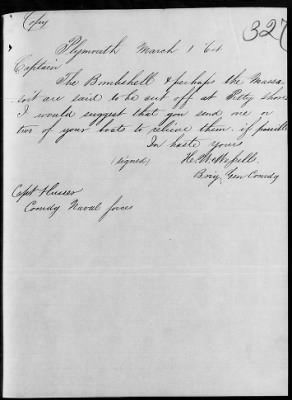 Copy
327
Plymouth March 1 64
Captain
The Bombshell & perhaps the Massa
soit are said to be cut off at Pitty Shoes
I would suggest that you send one or
two of your boats to relieve them if possible
In haste yours
(signed) H. W. Wessells
Brig Gen Comdg
Capt Flusser
Comdg Naval forces